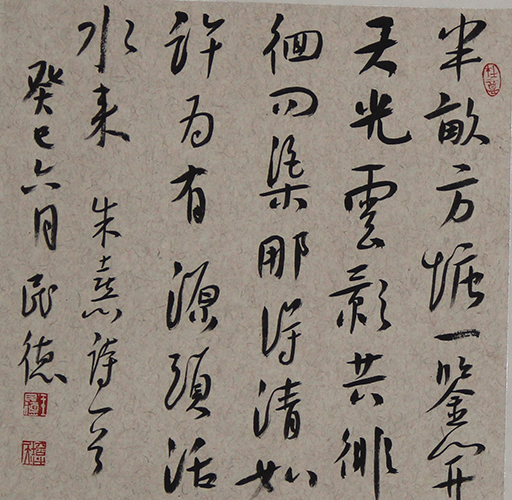 半畝方塘一鑒開
天光雲影共徘
徊問渠那得清如
許为有源頭活
水来 朱熹詩一首
癸巳六月 民德